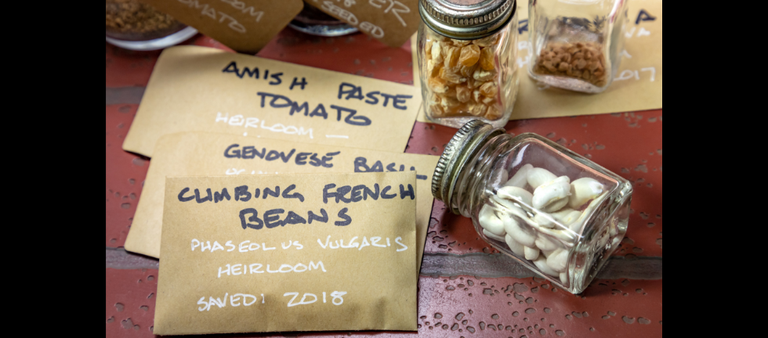 TOMATO
SEEDED
AMISH PASTE
TOMATO
HEIRLOOM
2017
GENOVESE BASIL
CLIMBING FRENCH
BEANS
PHASEOLUS VULGARIS
HEIRLOOM
SAVED: 2018